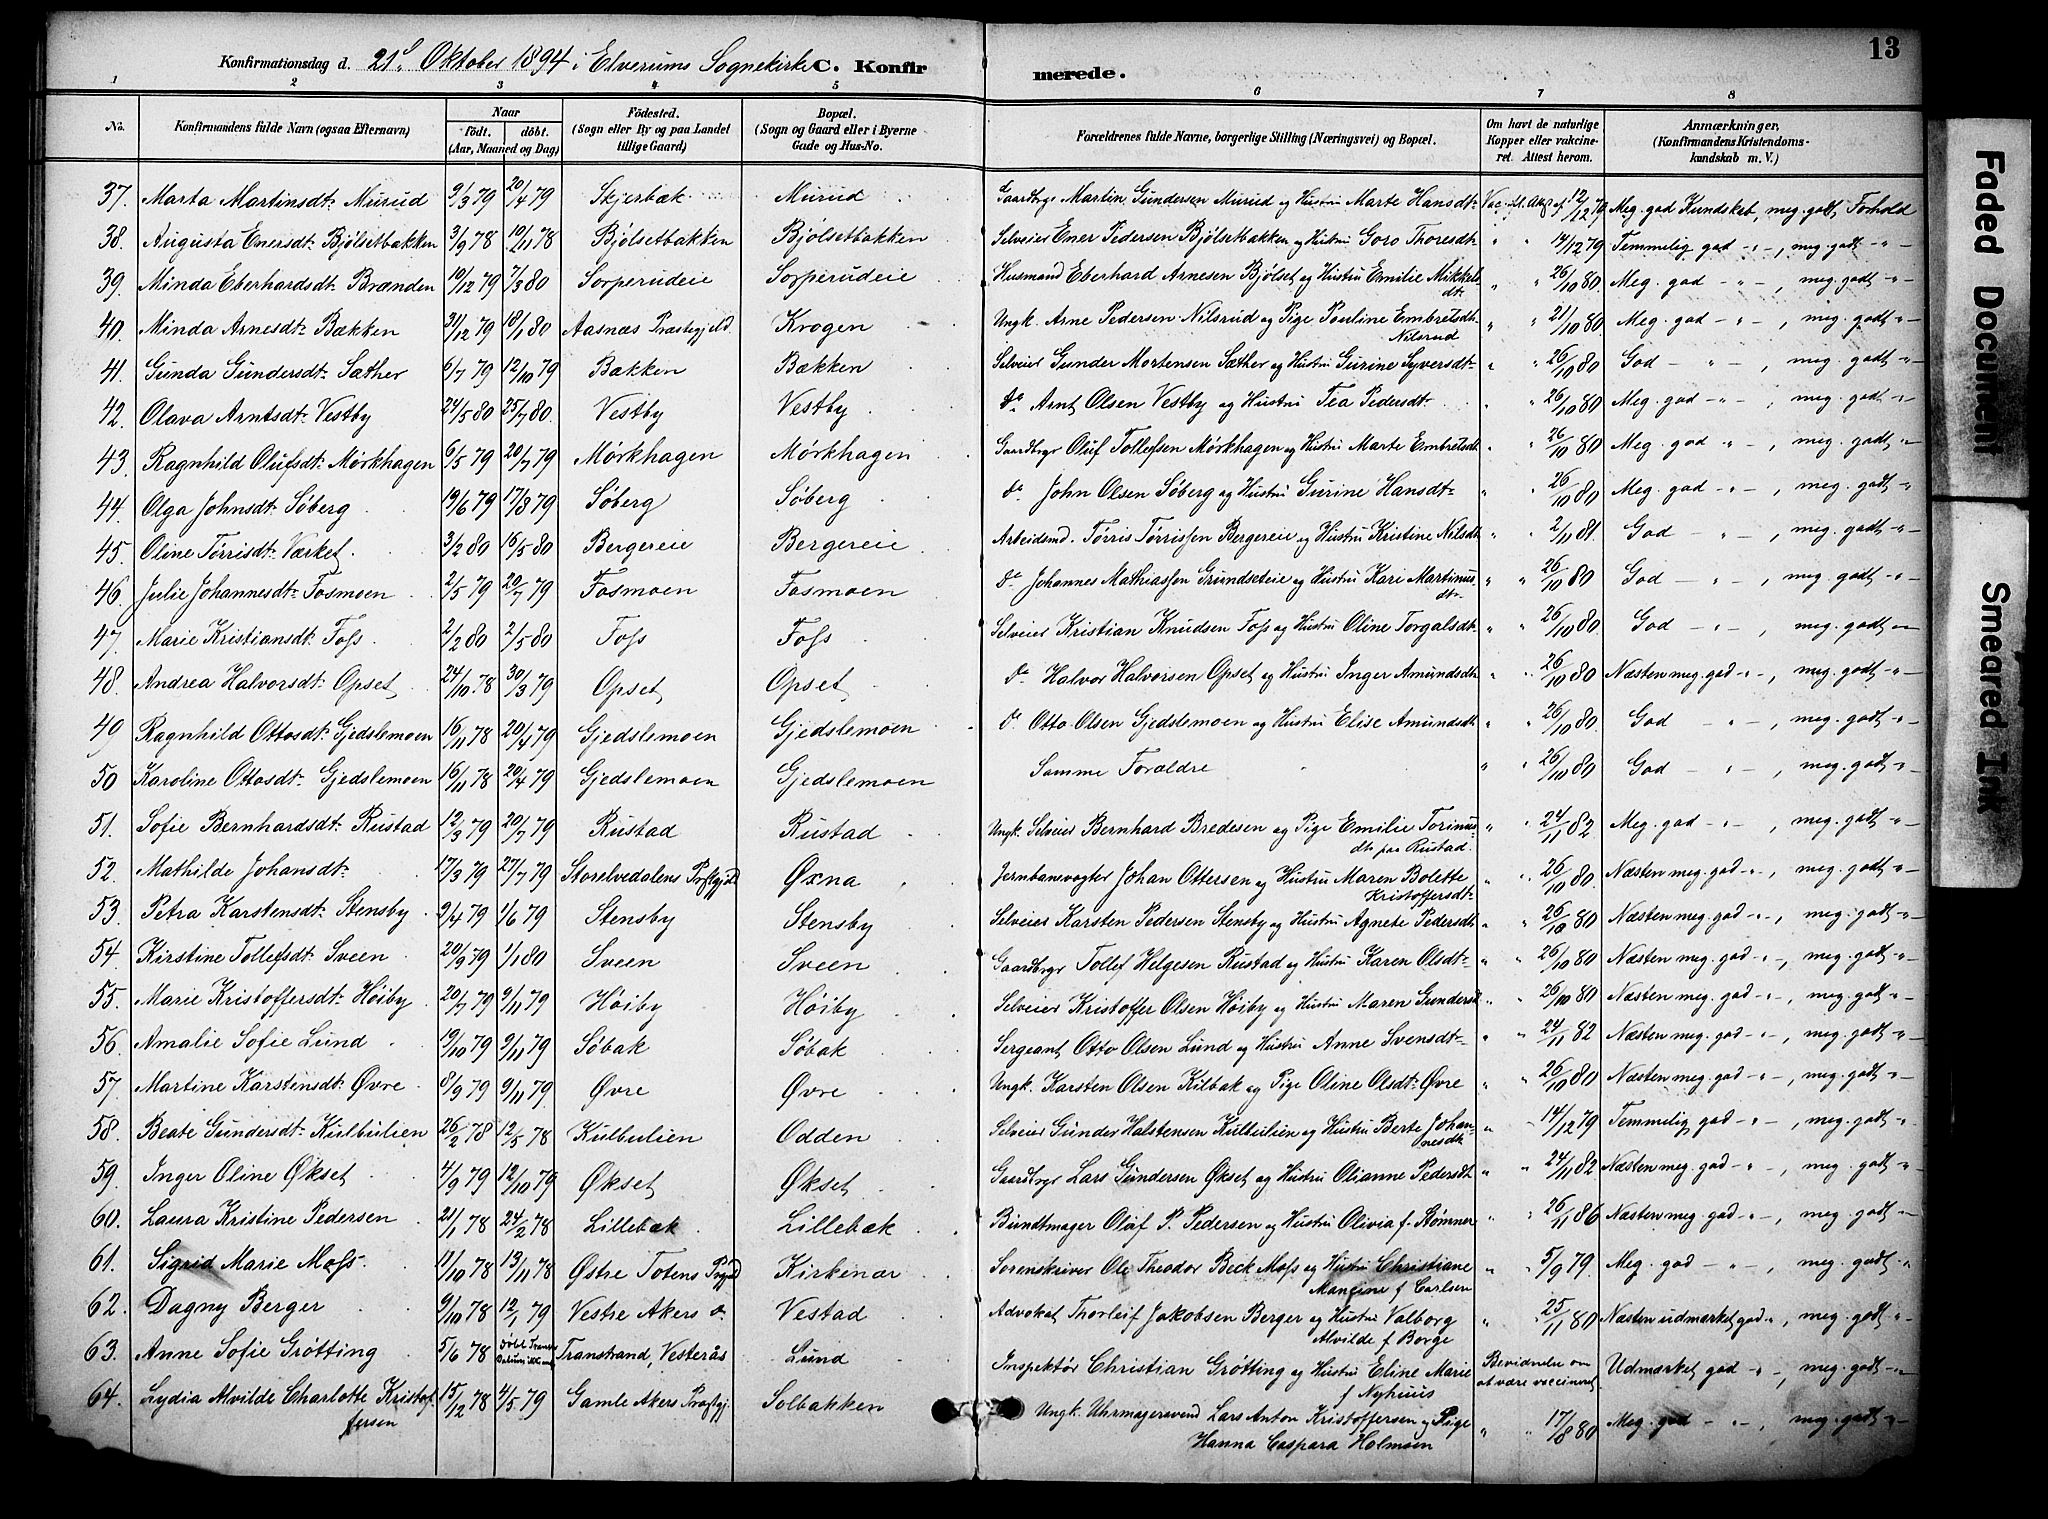 Konfirmationsdag d. 21de Oktober 1894 i Elverums Sognekirke C. Konfirmerede. 13
1 2 3 4 5 6 7 8
No. Konfirmandens fulde Navn (ogsaa Efternavn) Naar födt. döbt. (Aar, Maaned og Dag) Födested. (Sogn eller By og paa Landet tillige Gaard) Bopæl. (Sogn og Gaard eller i Byerne Gade og Hus-No. Forældrenes fulde Navne, borgerlige Stilling (Næringsvei) og Bopæl. Om havt de naturlige Kopper eller vakcineret. Attest herom. Anmærkninger. (Konfirmandens Kristendomskundskab m. V.)
37. Marta Martinsdt. Murud 9/3 79 20/4 79 Skjerbæk Murud Gaardbrgr Martin Gundersen Murud og Hustru Marte Hansdt. Vac. 12/12 79 Meg. god Kundskab, meg. godt Forhold
38. Augusta Enersdt. Bjølsetbakken 3/9 78 10/11 78 Bjølsetbakken Bjølsetbakken Selveier Ener Pedersen Bjølsetbakken og Hustru Goro Thoresdt. " " 14/12 79 Temmelig god -"-, meg. godt -"-
39. Minda Eberhardsdt. Brænden 10/12 79 7/3 80 Sorperudeie Sorperudeie Husmand Eberhard Arnesen Bjølset og Hustru Emilie Mikkelsdt. " " 26/10 80. Meg. god -"-, meg. godt -"-
40. Minda Arnesdt. Bækken 31/12 79 18/1 80 Aasnæs Præstegjeld. Krogen Ungk. Arne Pedersen Nilsrud og Pige Pauline Embretsdt. Nilsrud " " 21/10 80. Meg. god -"-, meg. godt -"-
41. Gunda Gundersdt. Sæther 6/7 79 12/10 79 Bækken Bækken Selveier Gunder Mortensen Sæther og Hustru Gurine Syversdt. " " 26/10 80 God -"-, meg. godt -"-
42. Olava Arntsdt. Vestby 24/5 80 25/7 80 Vestby Vestby do Arnt Olsen Vestby og Hustru Tea Pedersdt. " " 26/10 80 Meg. god -"-, meg. godt -"-
43. Ragnhild Olufsdt. Mørkhagen 6/5 79 20/7 79 Mørkhagen Mørkhagen Gaardbrgr Oluf Tollefsen Mørkhagen og Hustru Marte Embretsdt. " " 26/10 80 Meg. god -"-, meg. godt -"-
44. Olga Johnsdt. Søberg 19/6 79 17/8 79 Søberg Søberg do John Olsen Søberg og Hustru Gurine Hansdt. " " 26/10 80 Meg. god -"-, meg. godt -"-
45. Oline Tørrisdt.Værket. 3/2 80 16/5 80 Bergereie Bergereie Arbeidsmd. Tørris Tørrissen Bergereie og Hustru Kristine Nilsdt. " " 2/11 81. God -"-, meg. godt -"-
46. Julie Johannesdt. Fosmoen 2/5 79 20/7 79 Fosmoen Fosmoen do Johannes Mathiassen Grundseteie og Hustru Kari Martinusdt. " " 26/10 80 God -"-, meg. godt -"-
47. Marie Kristiansdt. Foss. 2/2 80 2/5 80 Foss Foss Selveier Kristian Knudsen Foss og Hustru Oline Torgalsdt. " " 26/10 80. God -"-, meg. godt -"-
48. Andrea Halvorsdt. Opset 24/10 78 30/3 79 Opset Opset do Halvor Halvorsen Opset og Hustru Inger Amundsdt. " " 26/10 80 Næsten meg. god -"-, meg. godt -"-
49 Ragnhild Ottosdt. Gjedslemoen 16/11 78 20/4 79 Gjedslemoen Gjedslemoen do Otto Olsen Gjedslemoen og Hustru Elise Amundsdt. " " 26/10 80. God -"-, meg. godt -"-
50 Karoline Ottosdt. Gjedslemoen 16/11 78 20/4 79 Gjedslemoen Gjedslemoen Samme Forældre " " 26/10 80 God -"-, meg. godt -"-
51. Sofie Bernhardsdt. Rustad 12/3 79 20/7 79 Rustad Rustad Ungk. Selveier Bernhard Bredesen og Pige Emilie Torinusdt. paa Rustad. " " 24/11 82 Meg. god -"-, meg. godt -"-
52. Mathilde Johansdt. 17/3 79 27/7 79 Storelvedalens Prstgjld Øxna Jernbanevogter Johan Ottersen og Hustru Maren Bolette Kristoffersdt. " " 26/10 80. Næsten meg. god -"-, meg. godt -"-
53. Petra Karstensdt. Stensby 2/4 79 1/6 79 Stensby Stensby Selveier Karsten Pedersen Stensby og Hustru Agnete Pedersdt. " " 26/10 80 Næsten meg. god -"-, meg. godt -"-
54. Kirstine Tollefsdt. Sveen 20/9 79 1/1 80 Sveen Sveen Gaardbrgr Tollef Helgesen Rustad og Hustru Karen Olsdt. " " 26/10 80 Næsten meg. god -"-, meg. godt -"-
55. Marie Kristoffersdt. Høiby 20/7 79 9/11 79 Høiby Høiby Selveier Kristoffer Olsen Høiby og Hustru Maren Gundersdt. " " 26/10 80 Næsten meg. god -"-, meg. godt -"-
56. Amalie Sofie Lund 19/10 79 9/11 79 Søbak Søbak Sergeant Otto Olsen Lund og Hustru Anne Svensdt. " " 24/11 82 Næsten meg. god -"-, meg. godt -"-
57. Martine Karstensdt. Øvre 8/9 79 9/11 79 Øvre Øvre Ungk. Karsten Olsen Kilbak og Pige Oline Olsdt. Øvre " " 26/10 80 Næsten meg. god -"-, meg. godt -"-
58. Beate Gundersdt. Kulbulien 26/2 78 12/5 78 Kulbulien Odden Selveier Gunder Halstensen Kulbulien og Hustru Berte Johannesdt. " " 14/12 79 Temmelig god -"-, meg. godt -"-
59. Inger Oline Økset 4/9 79 12/10 79 Økset Økset Gaardbrgr Lars Gundersen Økset og Hustru Olianne Pedersdt. " " 24/11 82 Næsten meg. god -"-, meg. godt -"-
60. Laura Kristine Pedersen 21/1 78 24/2 78 Lillebæk Lillebæk Bundtmager Olaf P. Pedersen og Hustru Olivia f. Strømner " " 26/11 86 Næsten meg. god -"-, meg. godt -"-
61. Sigrid Marie Moss 11/10 78 13/11 78 Østre Totens Prgjld Kirkenær Sorenskriver Ole Theodor Beck Moss og Hustru Christiane Mancine f Carlsen " " 5/9 79. Meg. god -"-, meg. godt -"-
62. Dagny Berger 9/10 78 12/1 79 Vestre Akers do Vestad Advokat Thorleif Jakobsen Berger og Hustru Valborg Alvilde f Borge " " 25/11 80 Næsten udmærket god -"-, meg. godt -"-
63. Anne Sofie Grøtting 5/6 78 Transtrand, Vesterås Lund Inspektør Christian Grøtting og Hustru Eline Marie f Nyhuus Bevidnelse om at være vaccineret. Udmærket god -"-, meg. godt -"-
64. Lydia Alvilde Charlotte Kristoffersen 15/12 78 4/5 79 Gamle Akers Præstgj. Solbakken Ungk. Uhrmagersvend Lars Anton Kristoffersen og Pige Hanna Caspara Holmsen " " 17/8 80 Meg. god -"-, meg. godt -"-
Faded Document
Smeared Ink